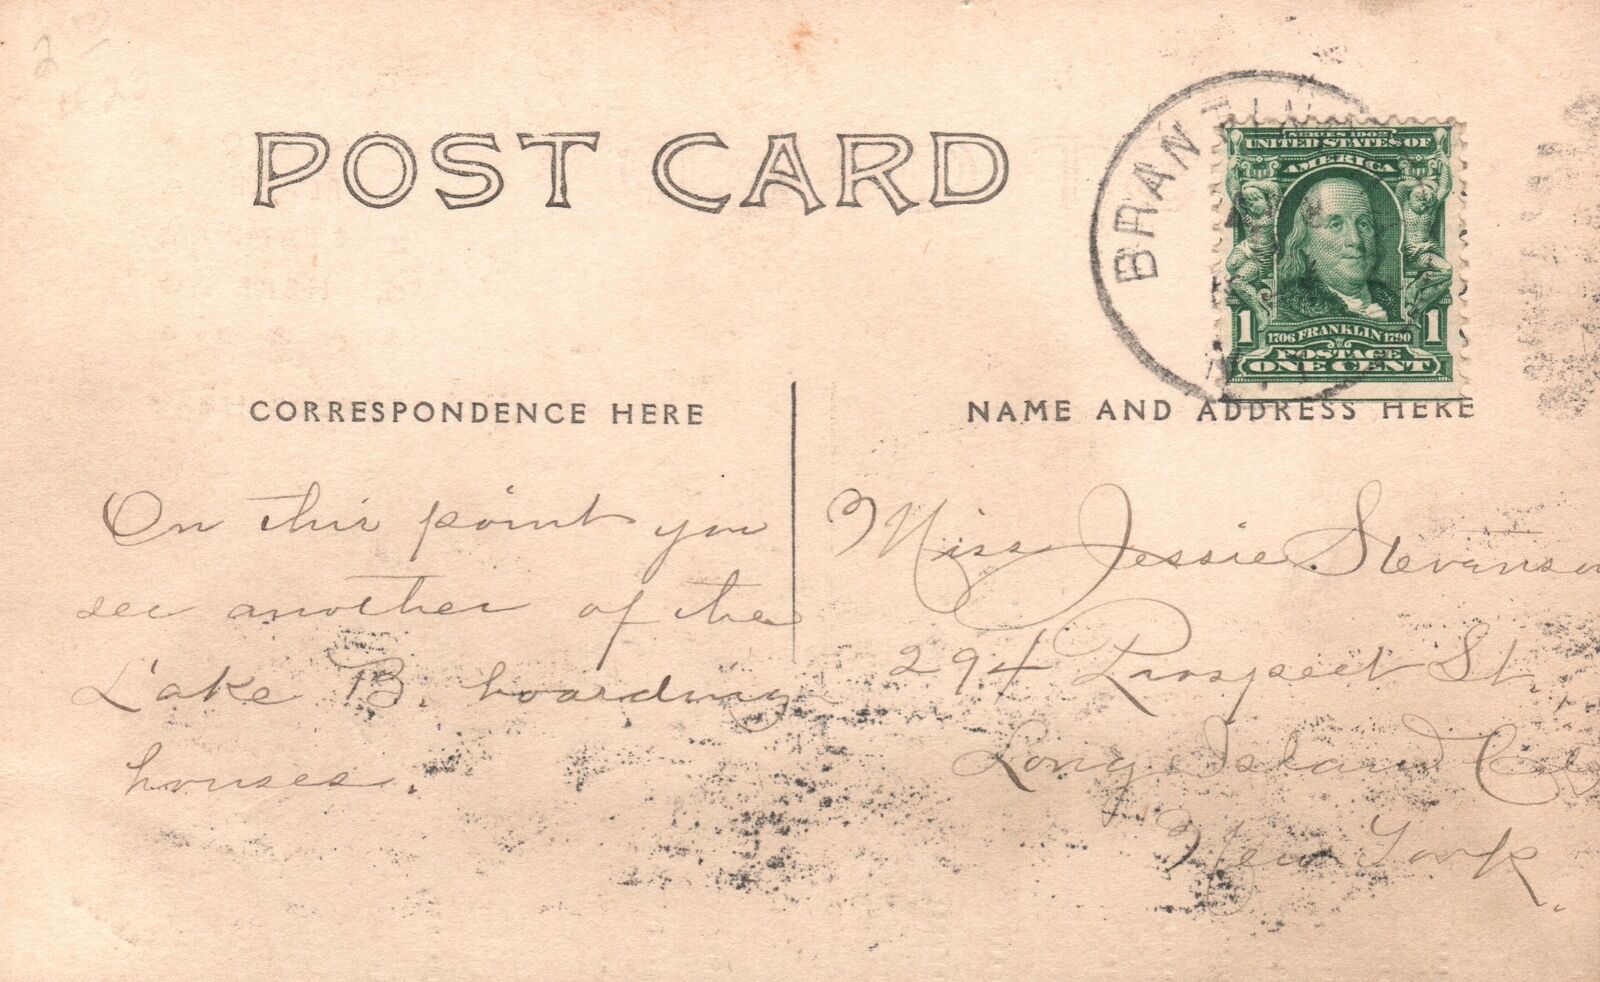 POST CARD
BRANTIN
SERIES 1902
UNITED STATES OF
AMERICA
1 1706 FRANKLIN 1790 1
POSTAGE
ONE CENT
CORRESPONDENCE HERE
NAME AND ADDRESS HERE
On this point you
see another of the
Lake B. boarding
houses.
Miss Jessie Stevenson
294 Prospect St.,
Long Island City
New York.